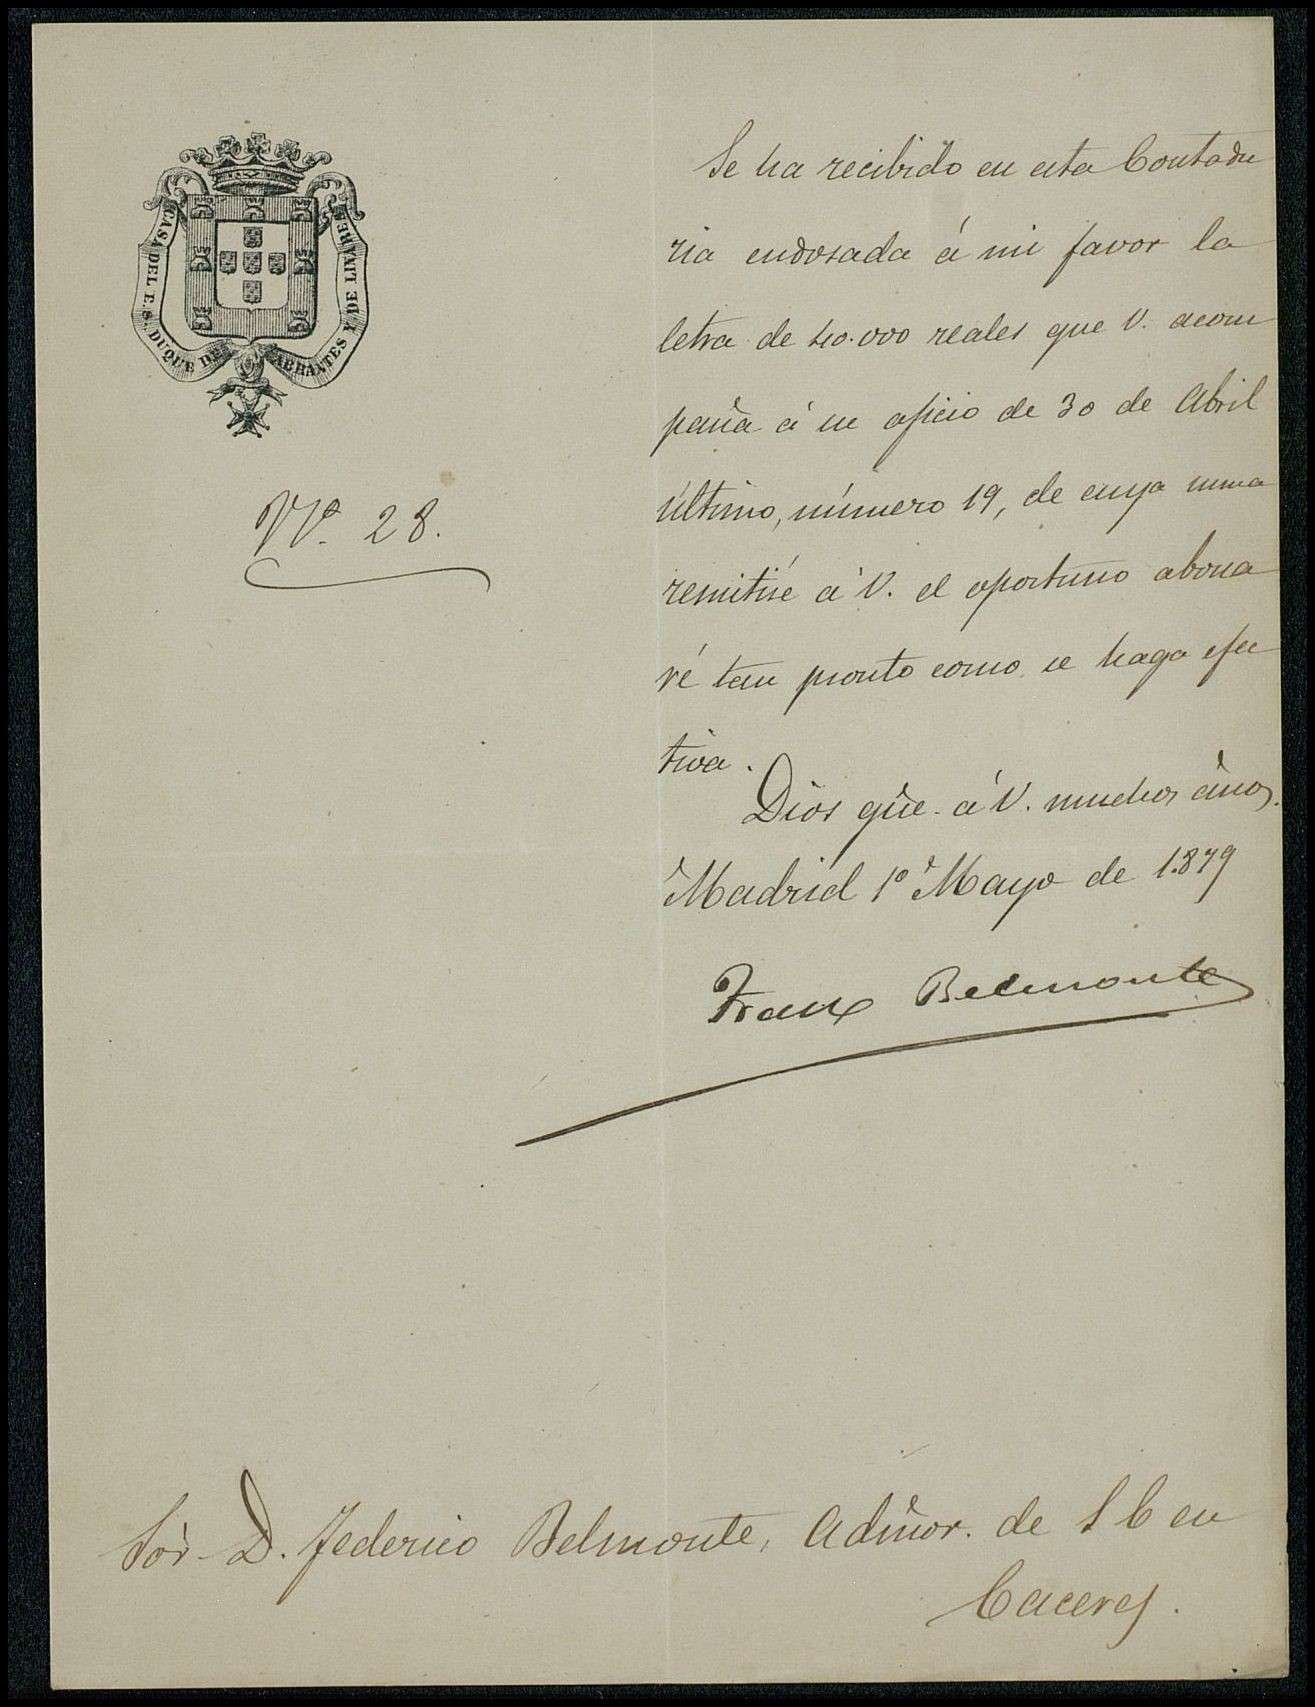 CASA DEL E. S. DUQUE DE ABRANTES Y DE LINARES
Nº 28.
Se ha recibido en esta Contadu
ria endosada á mi favor la
letra de 40.000 reales que V. acom
paña á su oficio de 30 de Abril
último, número 19, de cuya suma
remitiré á V. el oportuno abona
ré tan pronto como se haga efec
tiva.
Dios gũe. á V. muchos años.
Madrid 1º Mayo de 1.879
Franco Belmonte
Sõr. D. Federico Belmonte, Admõr. de S E en
Caceres.